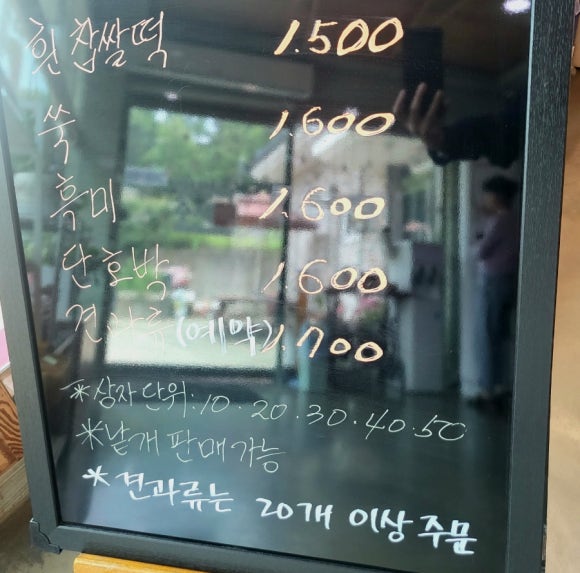 흰찹쌀떡 1.500
쑥 1.600
흑미 1.600
단호박 1.600
견과류(예약) 1.700
*상자단위.10.20.30.40.50
*낱개 판매가능
*견과류는 20개 이상 주문